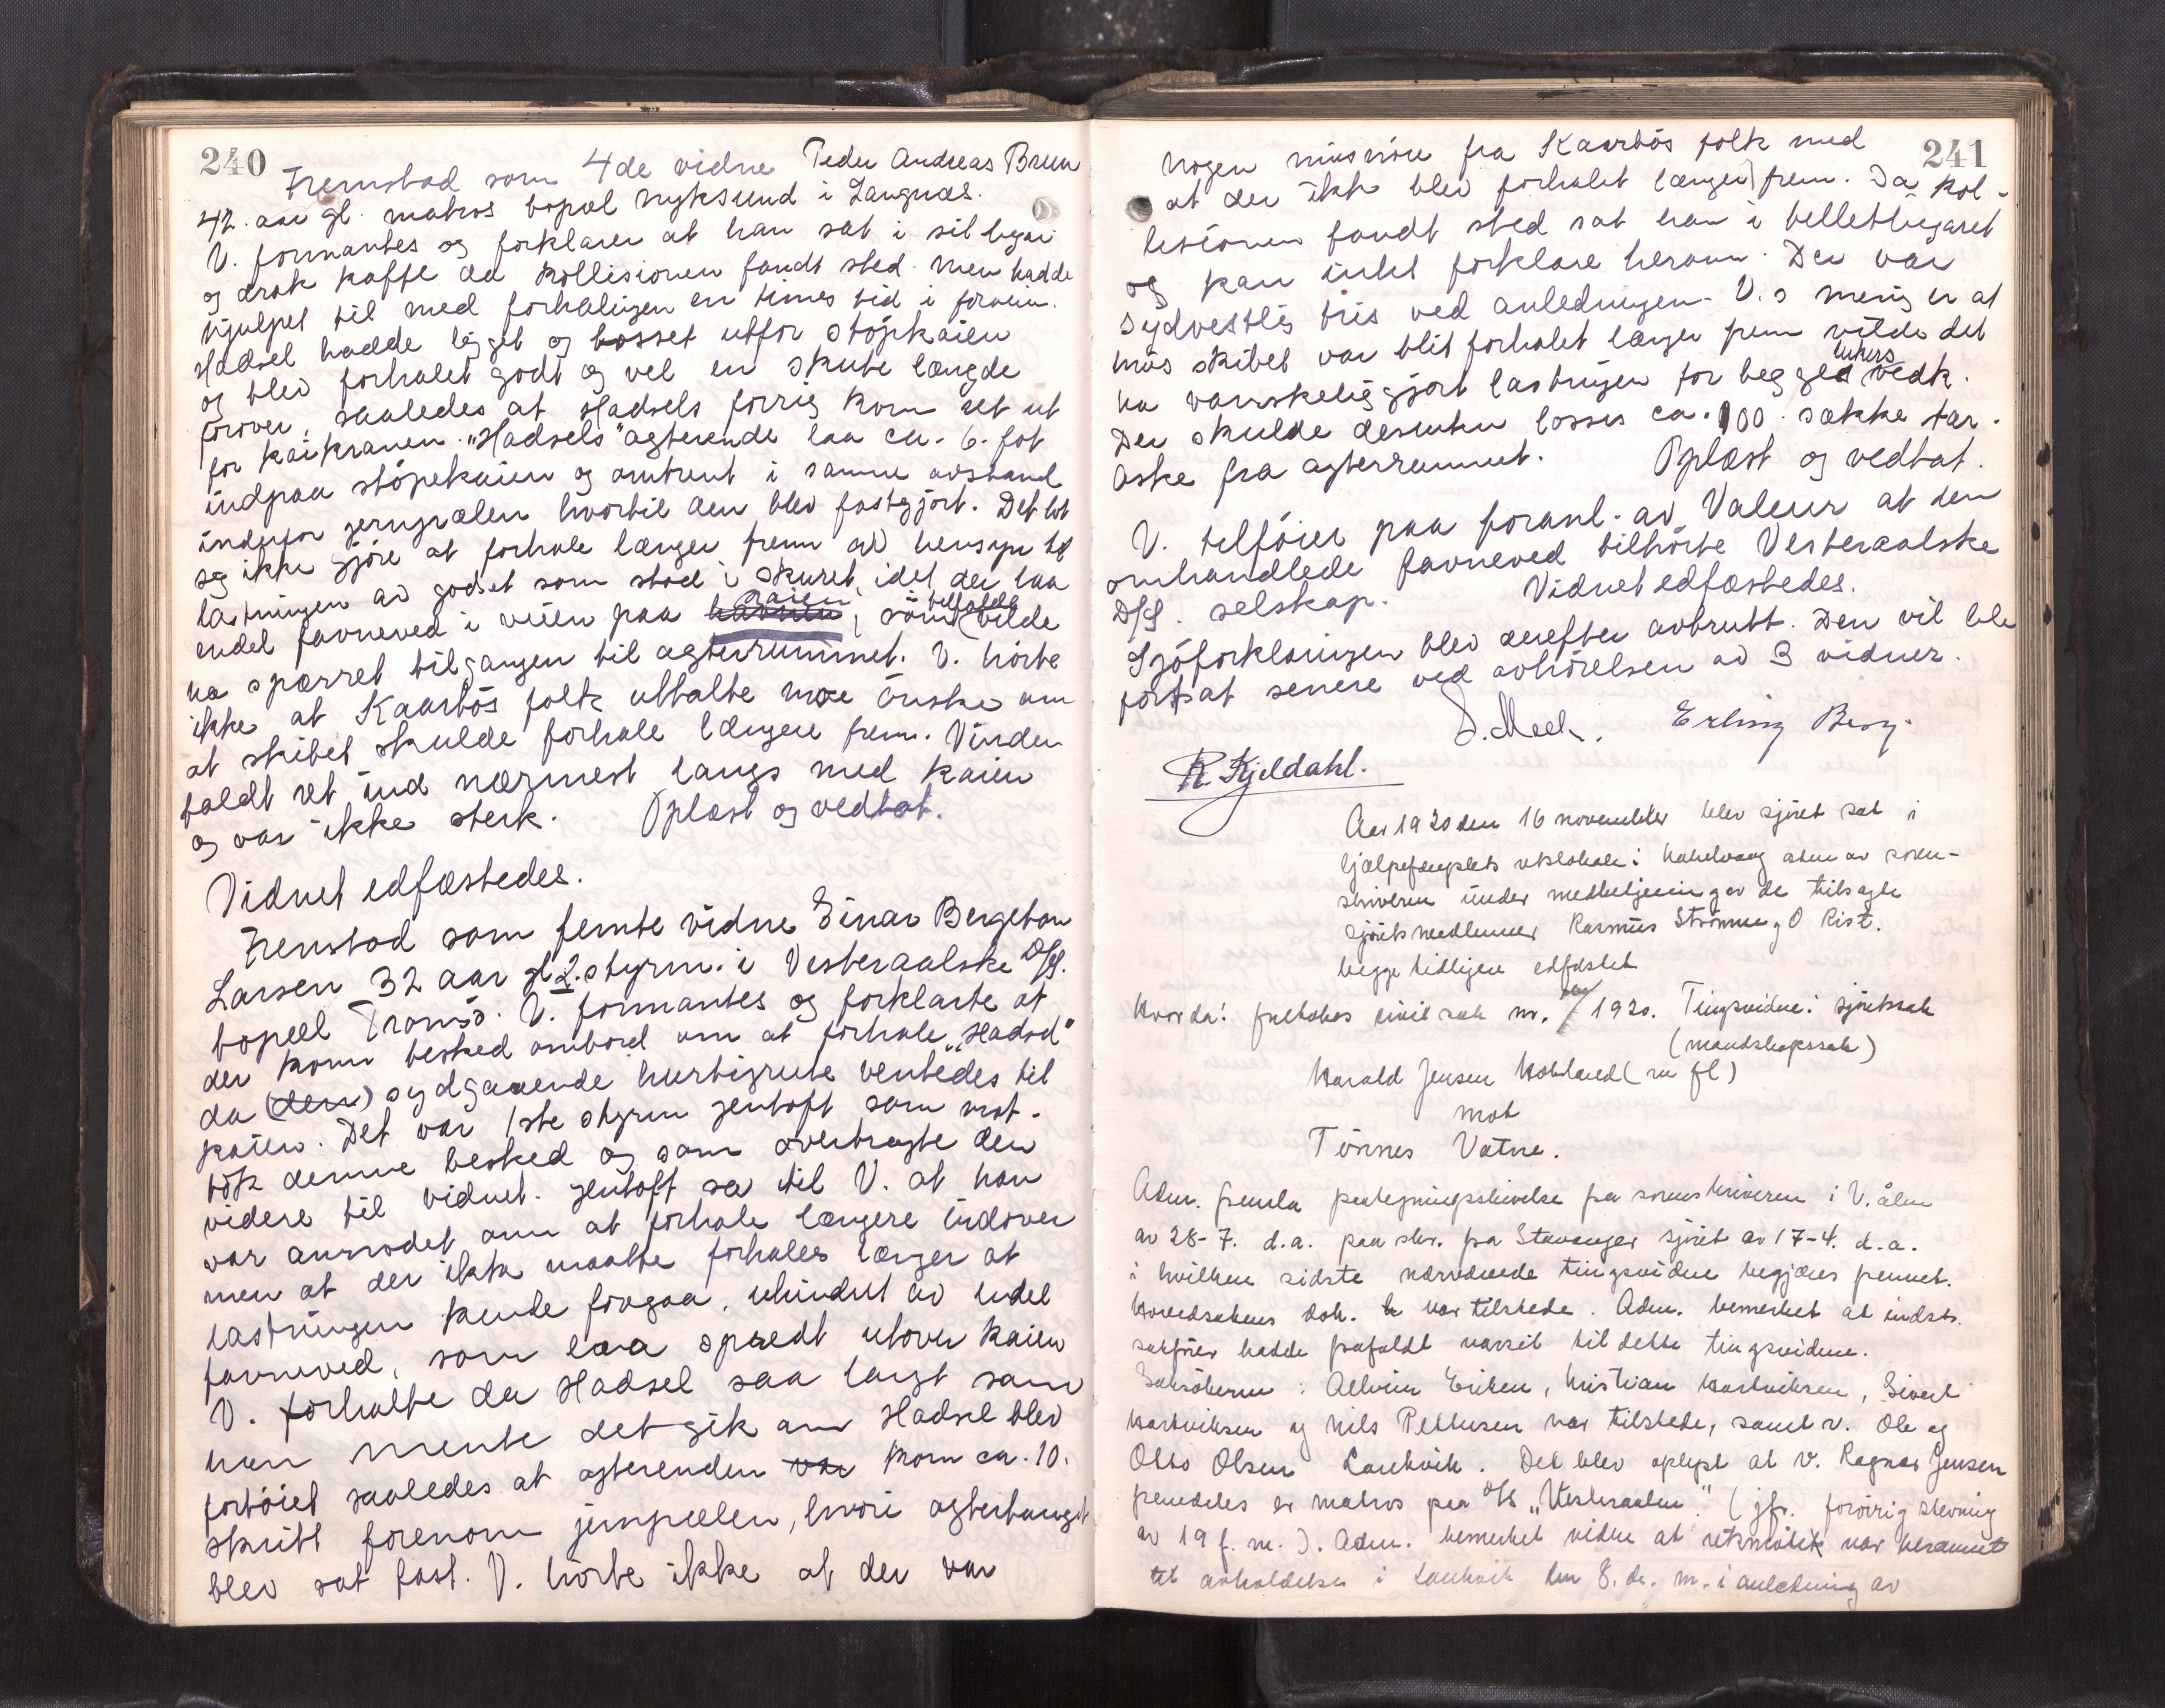 240
Fremstod som 4de vidne Peder Andreas Bruun
42. aar gl. matros bopæl Nyksund i Langnæs.
V. formantes og forklarer at han sat i sit lugar
og drak kaffe da kollisionen fandt sted. Men hadde
hjulpet til med forhalingen en times tid i forveien.
Hadsel hadde ligget og losset utfor støpkaien
og blev forhalet godt og vel en skute længde
forover, saaledes at Hadsels forrig kom ret ut
for kaikranen. "Hadsels" agterende laa ca. 6. fot
indpaa støpekaien og omtrent i samme avstand
indenfor jernpælen hvortil den blev fastgjort. Det lot
sig ikke gjöre at forhale længer frem av hensyn til
lastningen av godset som stod i skuret, idet der laa
endel favneved i veien paa havnen kaien, som i tilfælde vilde
ha spærret tilgangen til agterrummet. V. hörte
ikke at Kaarbös folk uttalte noe önske om
at skibet skulde forhale længere frem. Vinden
faldt ret ind nærmest langs med kaien
og var ikke sterk. Oplæst og vedtat.
Vidnet edfæstedes.
Fremstod som femte vidne Einar Bergeton
Larsen 32 aar gl 2. styrm. i Vesteraalske D/S.
bopæl Tromsö. V. formantes og forklarte at
der kom besked ombord om at forhale "Hadsel"
da (den) sydgaaende hurtigrute ventedes til
kaien. Det var 1ste styrm Jentoft som mot-
tok denne besked og som overbragte den
videre til vidnet. Jentoft sa til V. at han
var anmodet om at forhale længere indover
men at der ikke maatte forhales længer at
lastningen kunde foregaa, uhindret av endel
favneved, som laa spredt utover kaien
V. forhalte da Hadsel saa langt som
han mente det gik an Hadsel blev
fortöiet saaledes at agterenden var kom ca. 10.
skritt forenom jernpælen, hvori agterfanget
blev sat fast. V. hörte ikke at der var
241
nogen misnöie fra Kaarbös folk med
at der ikke blev forhalet længer frem. Da kol-
lisionen fandt sted sat han i billetlugaret
og kan intet forklare herom. Der var
sydvestlig bris ved anledningen. V.s mening er at
hvis skibet var blit forhalet længer frem vilde det
ha vanskeliggjort lastningen for begges lukers vedk.
Der skulde desuten losses ca. 100. sække tar.
aske fra agterrummet. Oplæst og vedtat.
V. tilföier paa foranl. av Valeur at den
omhandlede favneved tilhörte Vesteraalske
D/S. selskap. Vidnet edfæstedes.
Sjöforklaringen blev derefter avbrutt. Den vil bli
fortsat senere ved avhörelsen av 3 vidner.
Erling Berg.
R. Kjeldahl.
Aar 1920 den 16 november blev sjöret sat i
hjælpefængslets retslokale i Kabelvaag adm av soren-
skriveren under medbetjening av de tilsagte
sjöretsmedlemmer Rasmus Strömme og O Rist.
begge tidligere edfæstet
Hvorda: foretokes civil sak nr. /1920. Tingsvidne: sjöretssak
(mandskapssak)
Harald Jensen Hovland (m fl)
mot
Tönnes Vatne.
Adm. fremla paategningsskrivelse fra sorenskriveren i V.ålen
av 28-7. d.a. paa skr. fra Stavanger sjöret av 17-4. d.a.
i hvilken sidste nærværende tingsvidne begjæres fremmet.
Hovedsakens dok. var tilstede. Adm. bemerket at indst.
sakförer hadde frafaldt varsel til dette tingsvidne.
Saksökerne: Allvin Eriksen, Kristian Hartviksen, Sivert
Hartviksen og Nils Pettersen var tilstede, samt v. Ole og
Otto Olsen Laukvik. Det blev oplyst at v. Ragnar Jensen
fremdeles er matros paa D/S "Vesteraalen" (jfr. forövrig stevning
av 19 f. m.). Adm. bemerket videre at retsmötet var berammet
til avholdelse i Laukvik den 8. ds. m. i anledning av